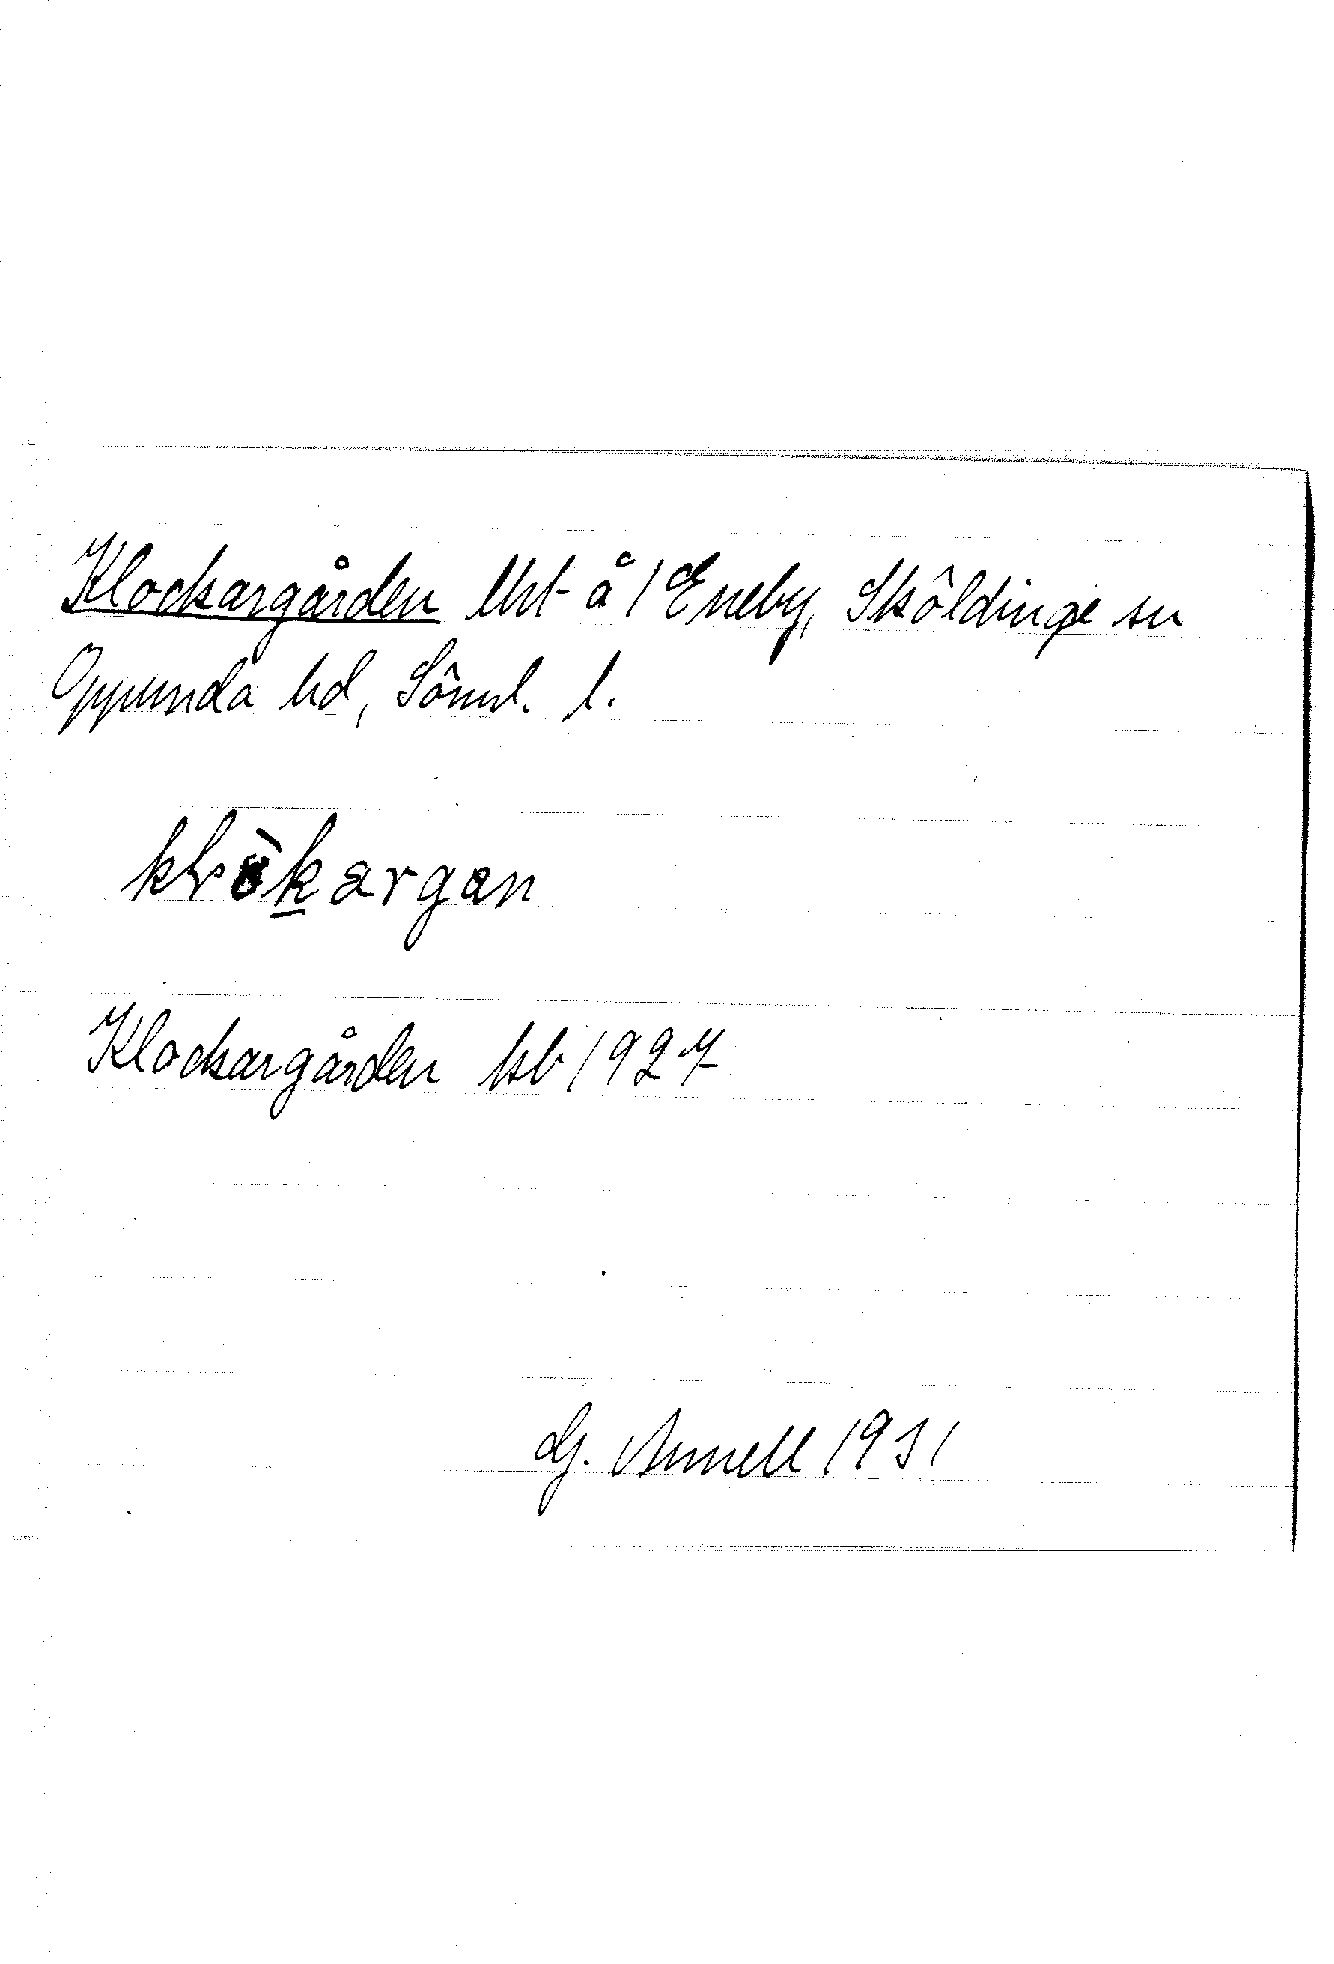 Klockargården lht å 1 Eneby, Sköldinge sn
Oppunda hd, Söml. l.
klòkargan
Klockargården kb 1927
G. Annell 1931